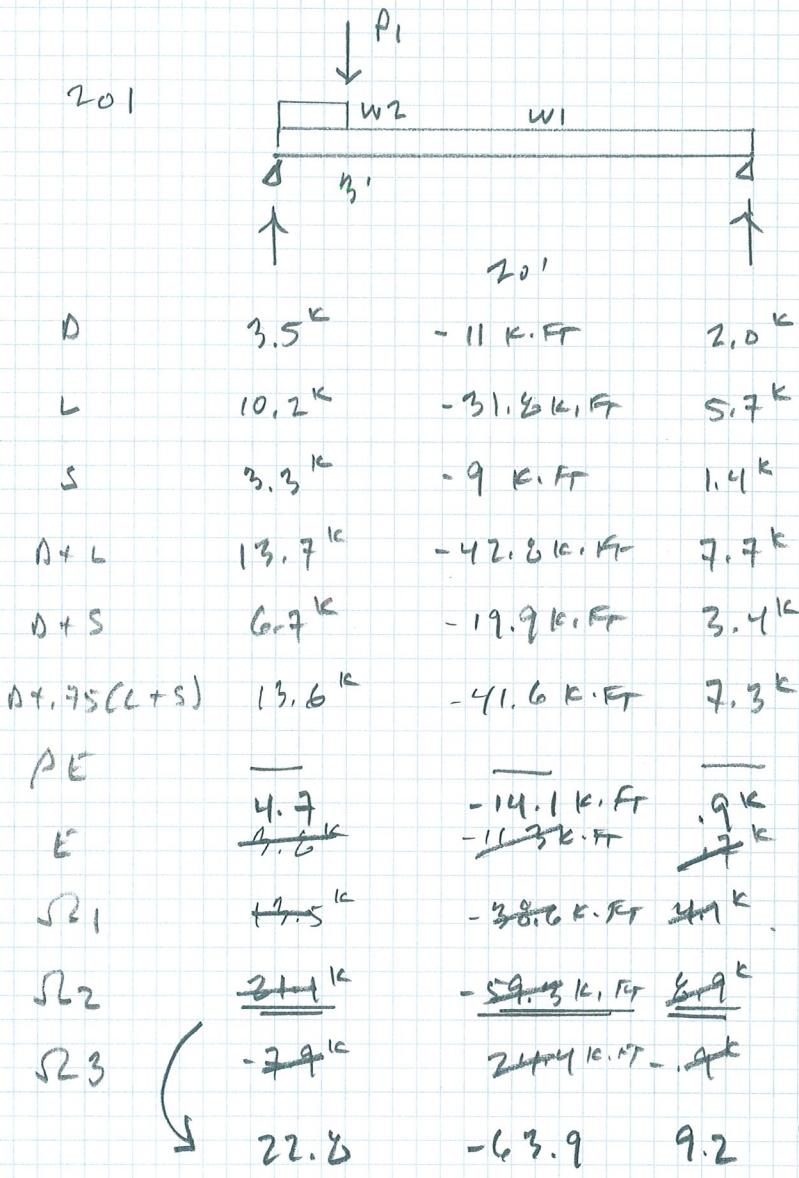 P1
201
W2 W1
3'
20'
D 3.5K -11 K.FT 2.0K
L 10.2K -31.8 K.FT 5.7K
S 3.3K -9 K.FT 1.4K
D+L 13.7K -42.8 K.FT 7.7K
D+S 6.7K -19.9 K.FT 3.4K
D+.75(L+S) 13.6K -41.6 K.FT 7.3K
ρE
4.7 -14.1 K.FT .9K
E -11.3 K.FT .7K
Ω1 13.5K -38.6 K.FT
Ω2 21.1K -59.3 K.FT 8.9K
Ω3 -7.9K 24.4 K.FT -.9K
22.8 -63.9 9.2